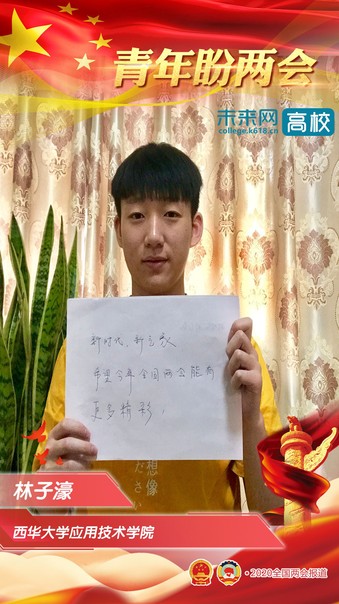 青年盼两会
未来网 高校
college.k618.cn
新时代、新气象
希望今年全国两会能有
更多精彩。
想像
ださい
林子濠
西华大学应用技术学院
·2020全国两会报道